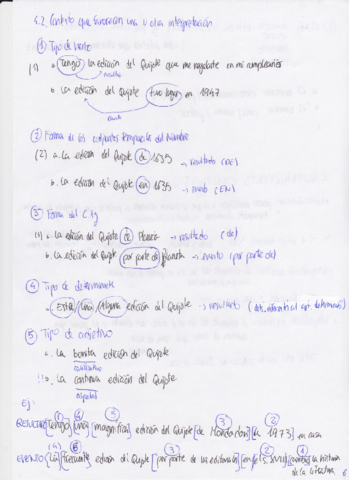 4.2 Contextos que favorecen una u otra interpretación
① Tipo de verbo
(1) a. Tengo la edición del Quijote que me regalaste en mi cumpleaños
resultado
b. La edición del Quijote tuvo lugar en 1947
evento
② Forma de los complementos temporales del Nombre
(2) a. La edición del Quijote de 1635 → resultado (DE)
b. La edición del Quijote en 1635 → evento (EN)
③ Forma del C.Ag
(1) a. La edición del Quijote de Planeta → resultado (de)
b. La edición del Quijote por parte de Planeta → evento (por parte de)
④ Tipo de determinante
- Esta/una/alguna edición del Quijote → resultado
⑤ Tipo de adjetivo
a. La bonita edición del Quijote
b. La continua edición del Quijote
Ej:
RESULTADO [Tengo] [una] [magnífica] edición del Quijote [de Mondadori] [de 1973] en casa
EVENTO [La] [frecuente] edición del Quijote [por parte de las editoriales] [en el S. XVIII] [cambió] la historia
de la literatura
6